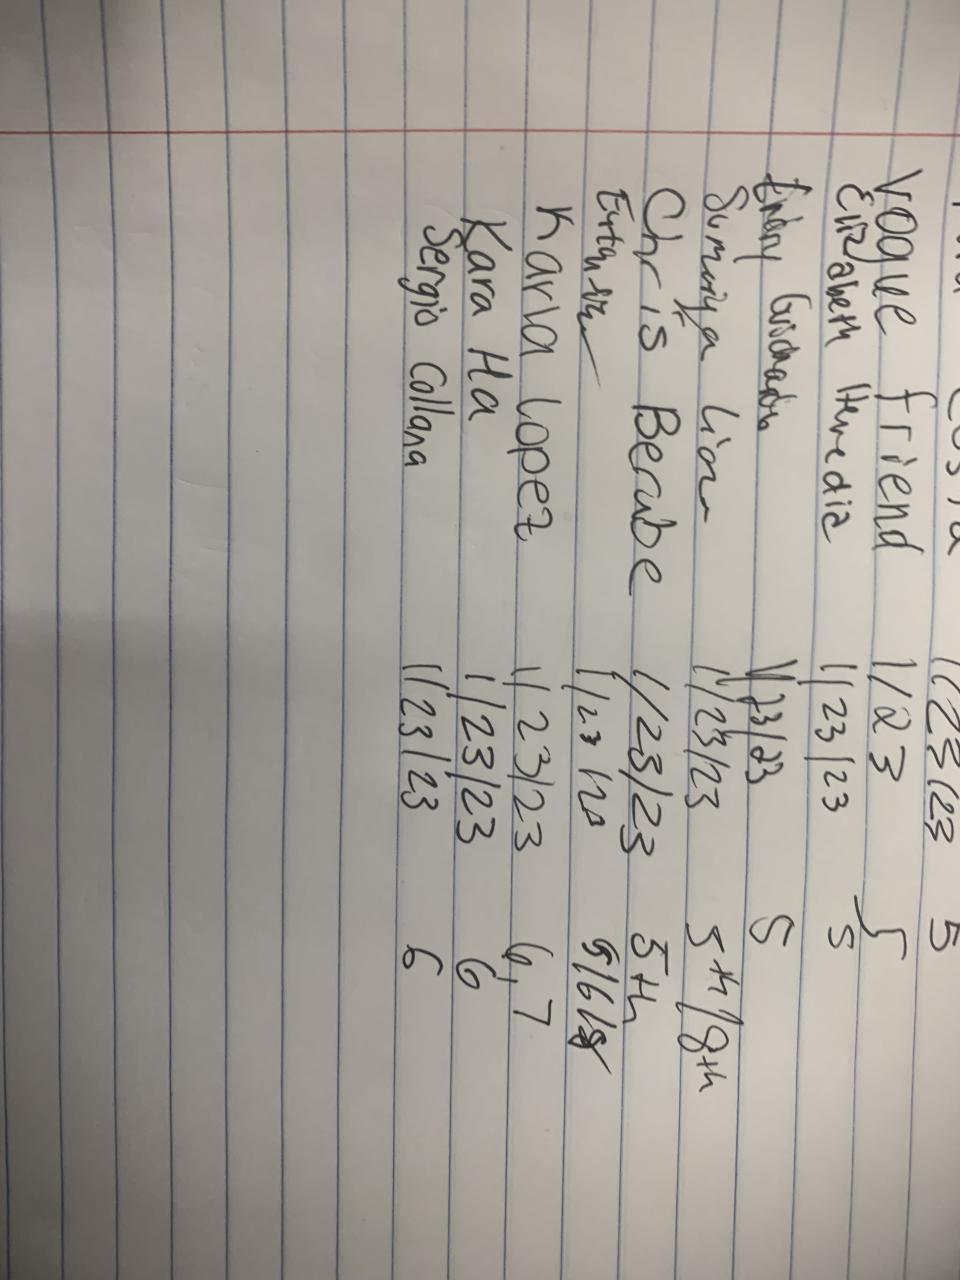 Costa 1/23/23 5
Vogue friend 1/23 5
Elizabeth Heredia 1/23/23 5
1/23/23 5
Sumaiya 1/23/23 5th/8th
Chris Berube 1/23/23 5th
1/23 5/6/8
Karla Lopez 1/23/23 6,7
Kara Ha 1/23/23 6
Sergio Collana 1/23/23 6